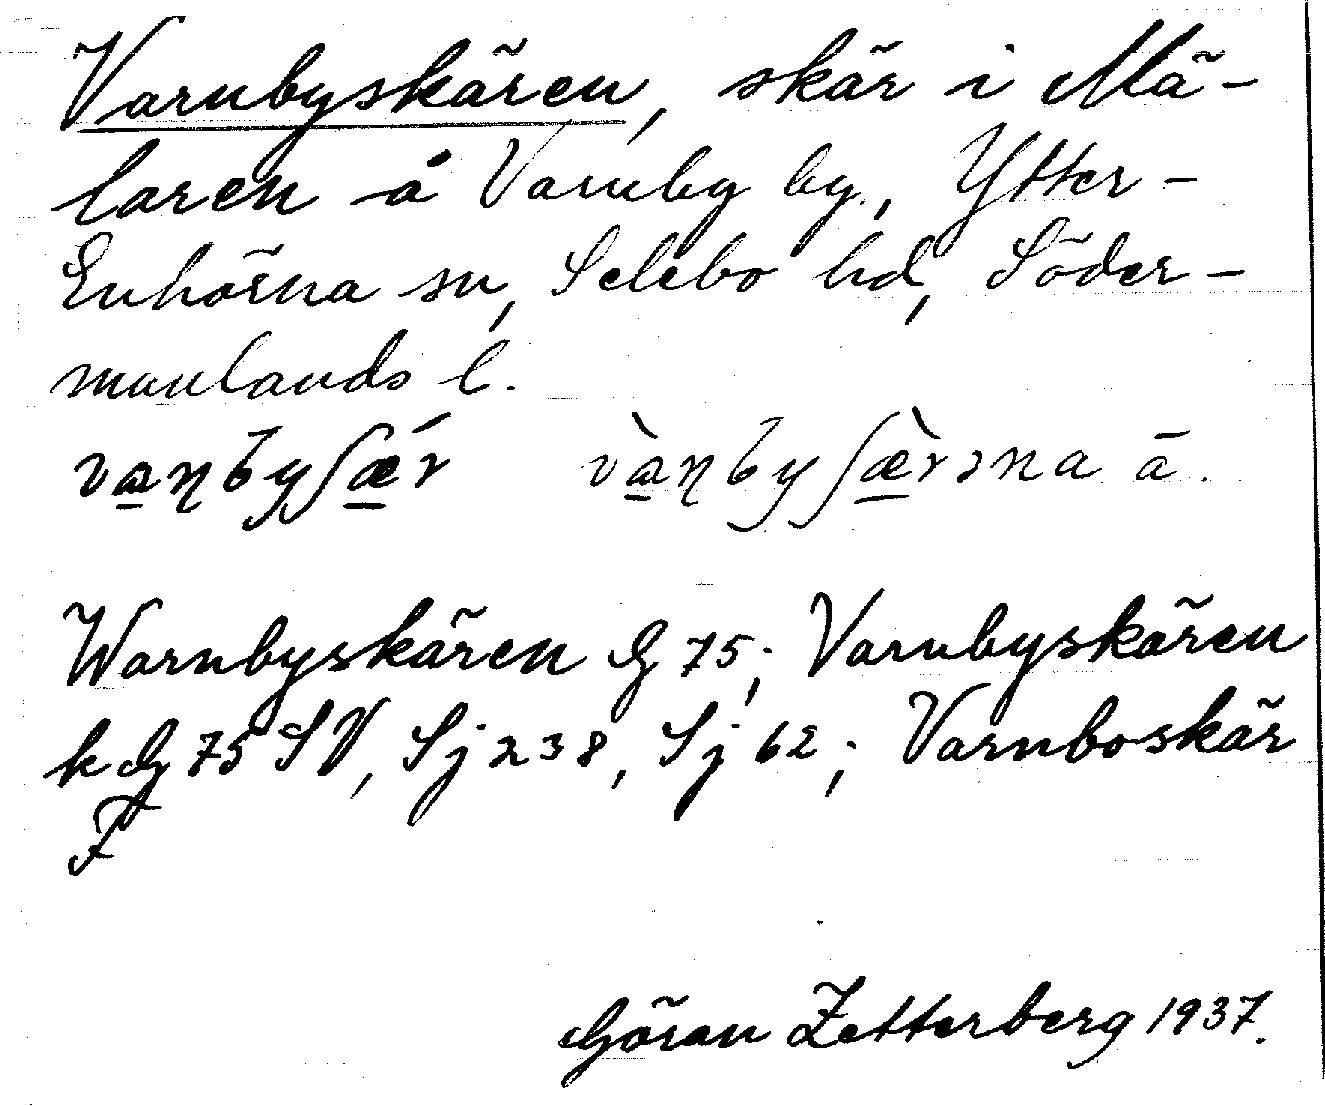 Varnbyskären, skär i Mä-
laren å Varnby by, Ytter-
Enhörna sn, Selebo hd, Söder-
manlands l.
va̱ɳbyʃǽ̱r và̱ɳbyʃæ̱̀rəna ā.
Warnbyskären G 75; Varnbyskären
k G 75 SV, Sj 238, Sj 62; Varnboskär
F
Göran Zetterberg 1937.